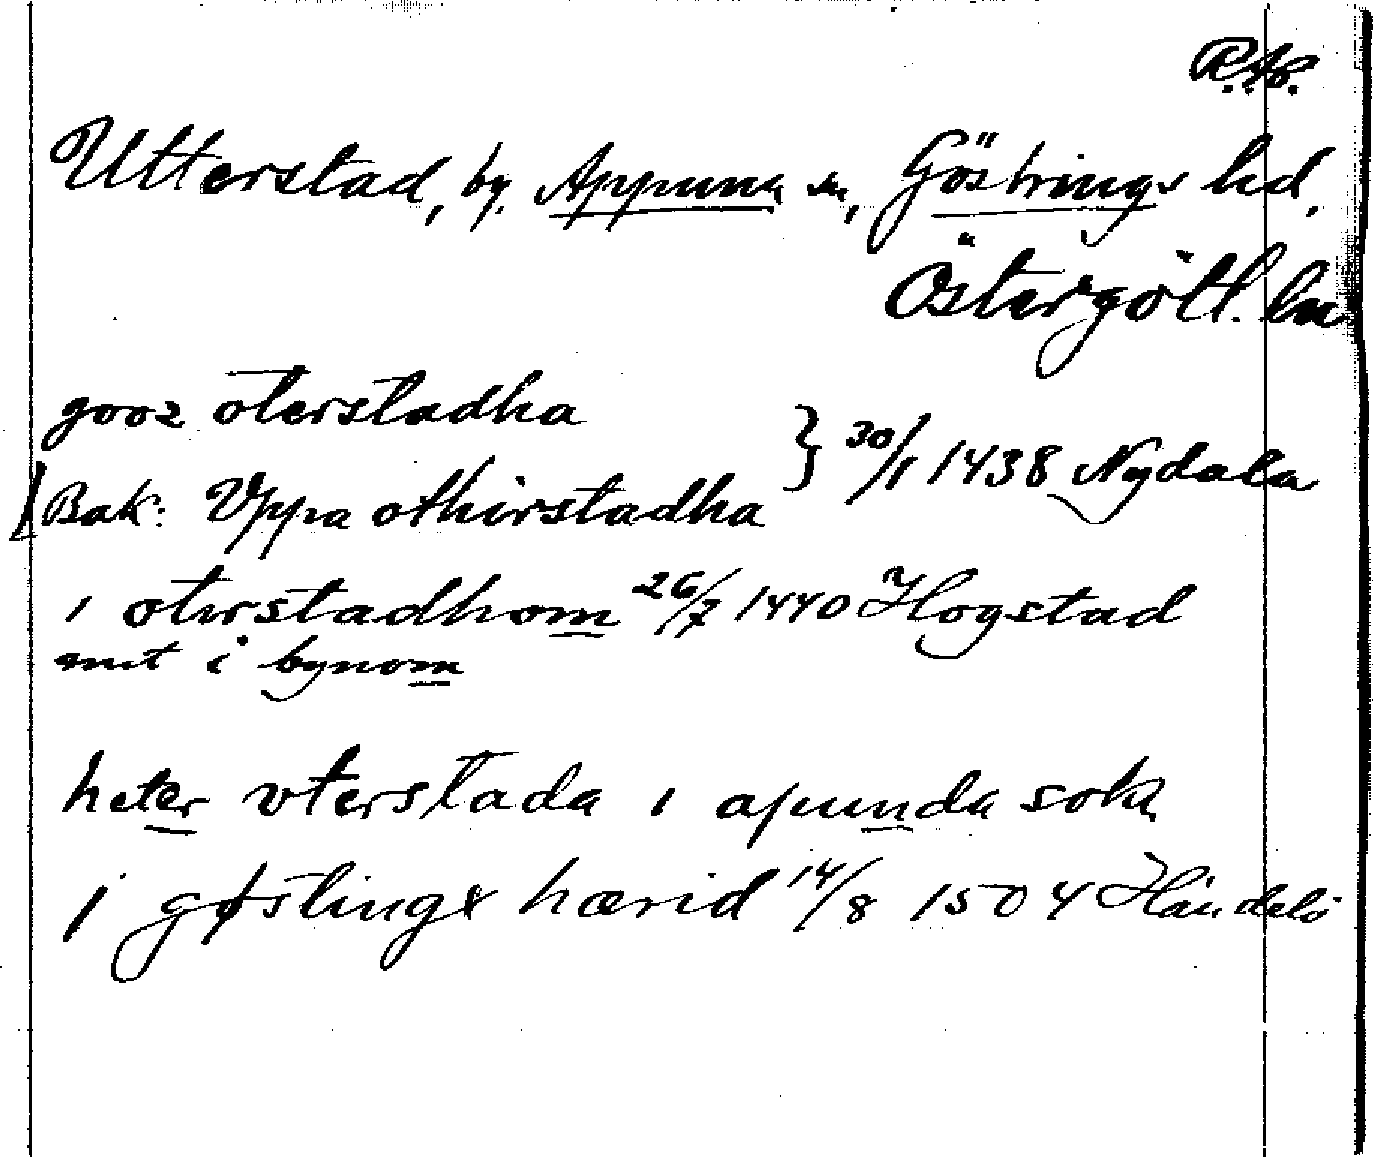 R.A.
Utterstad, by. Appuna sn, Göstrings hd,
Östergötl. ln
gooz oterstadha
[Bak: Vppa othirstadha } 30/1 1438 Nydala
i oterstadhom 26/7 1440 Hogstad
snt i bynom
heter vterstada i apunda sokn
j gøstings hærid 14/8 1504 Händelö